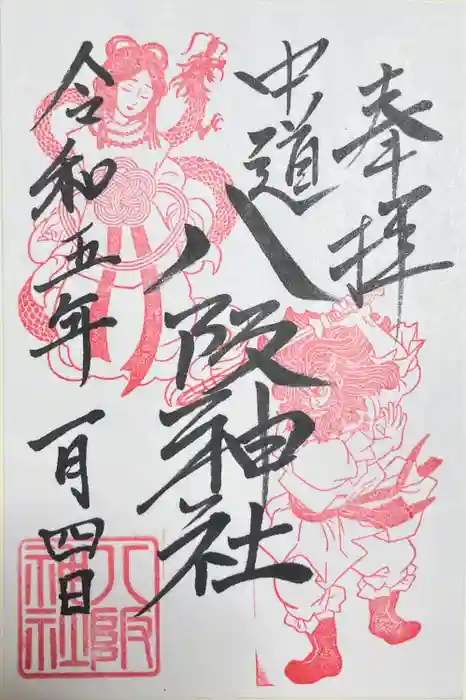 奉拝
中道
八阪神社
令和五年
一月四日
八阪
神社